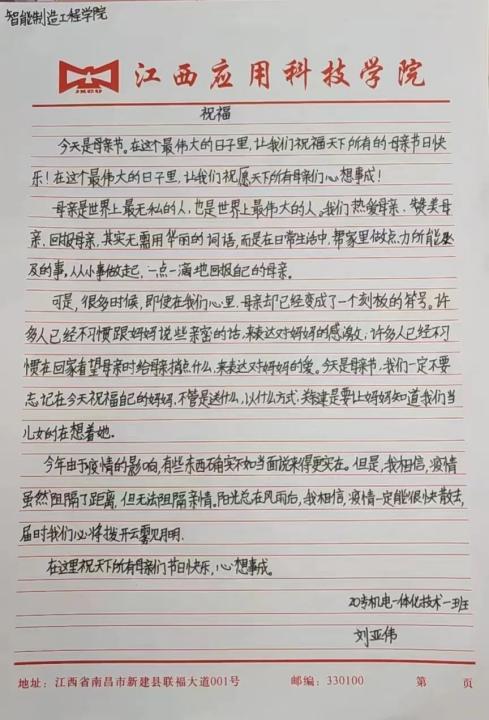 智能制造工程学院
JXCU
江西应用科技学院
祝福
今天是母亲节。在这个最伟大的日子里,让我们祝福天下所有的母亲节日快
乐!在这个最伟大的日子里,让我们祝愿天下所有母亲们心想事成!
母亲是世界上最无私的人,也是世界上最伟大的人。我们热爱母亲、赞美母
亲、回报母亲,其实无需用华丽的词语,而是在日常生活中,帮家里做点力所能及
及的事,从小事做起,一点一滴地回报自己的母亲。
可是,很多时候,即使在我们心里,母亲却已经变成了一个刻板的符号。许
多人已经不习惯跟妈妈说些亲密的话,来表达对妈妈的感激;许多人已经不习
惯在回家看望母亲时给母亲捎点什么,来表达对妈妈的爱。今天是母亲节,我们一定不要
忘记在今天祝福自己的妈妈,不管是送什么,以什么方式,关键是要让妈妈知道我们当
儿女的在想着她。
今年由于疫情的影响,有些东西确实不如当面说来得更实在。但是,我相信,疫情
虽然阻隔了距离,但无法阻隔亲情。阳光总在风雨后,我相信,疫情一定能很快散去,
届时我们必将拨开云雾见月明.
在这里祝天下所有母亲们节日快乐,心想事成。
20专机电一体化技术一班
刘亚伟
地址:江西省南昌市新建县联福大道001号 邮编:330100 第 页